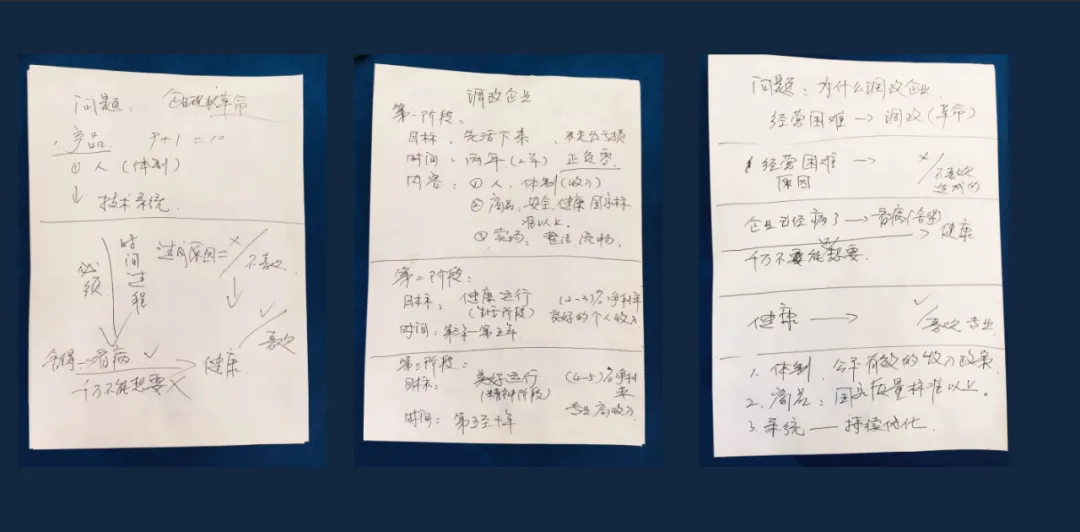 问题：
1. 产品 9+1=10
① 人（体制）
↓ 技术系统
必须
时间过程
造成原因= × 不喜欢
舍得→看病 ✓
千万不能想要 ×
健康
✓ 喜欢
调改企业
第一阶段、
目标、先活下来、
时间：两年（2年） 正负零
内容：① 人、体制（收入）
② 商品：安全、健康 国家标
准以上。
③ 卖场：整洁、流畅。
第二阶段：
目标：健康运行 (2-3)%净利率
（生活阶段） 良好的个人收入
时间：第三—第五年
第三阶段：
目标： 美好运行 (4-5)%净利
（精神阶段） 率
时间：第五至十年 专业高收入
问题：为什么调改企业
经营困难→调改（革命）
经营困难→ × 不喜欢
原因 造成的
企业已经病了→看病（舍得）
→健康
千万不能想要.
健康→ ✓ 喜欢 专业
1. 体制、公平有效的收入政策
2. 商品：国家质量标准以上。
3. 系统—持续优化